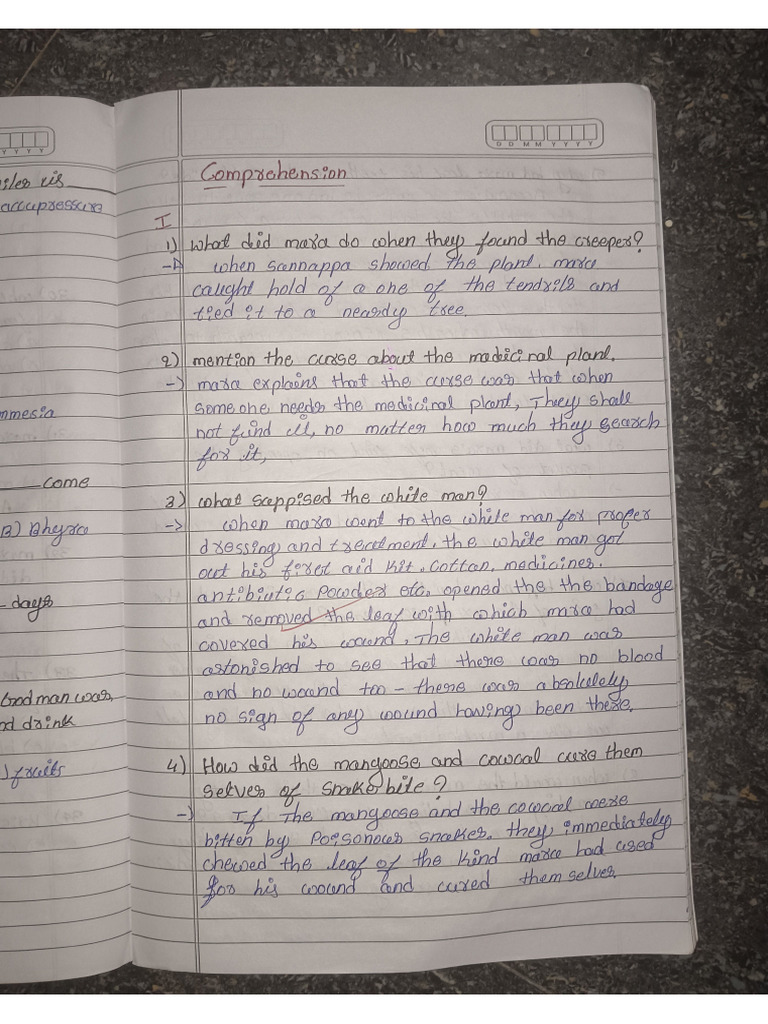 Y Y Y Y
accupressure
mmesia
come
B) Bhyra
- days
God man was,
nd drink
) fruits
D D M M Y Y Y Y
Comprehension
I
1) what did mara do when they found the creeper?
when sannappa showed the plant. mara
caught hold of a one of the tendrils and
tied it to a neardy tree.
2) mention the curse about the madicinal plant.
-) mara explains that the curse was that when
someone needs the medicinal plant, They shall
not find it, no matter how much they search
for it,
3) what suppised the white man?
-> when mara went to the white man for proper
dressing and treatment. the white man got
out his first aid kit. cotton. medicines.
antibiutic powder etc. opened the the bandage
and removed the leaf with which mara had
covered his wound, The white man was
astonished to see that there was no blood
and no wound too - there was absolutely
no sign of any wound having been there.
4) How did the mangoose and cowcal cure them
selves of snake bite?
-) If The mangoose and the cowcal were
bitten by Poisonous snakes. they immediately
chewed the leaf of the kind mara had used
for his wound and cured themselves.